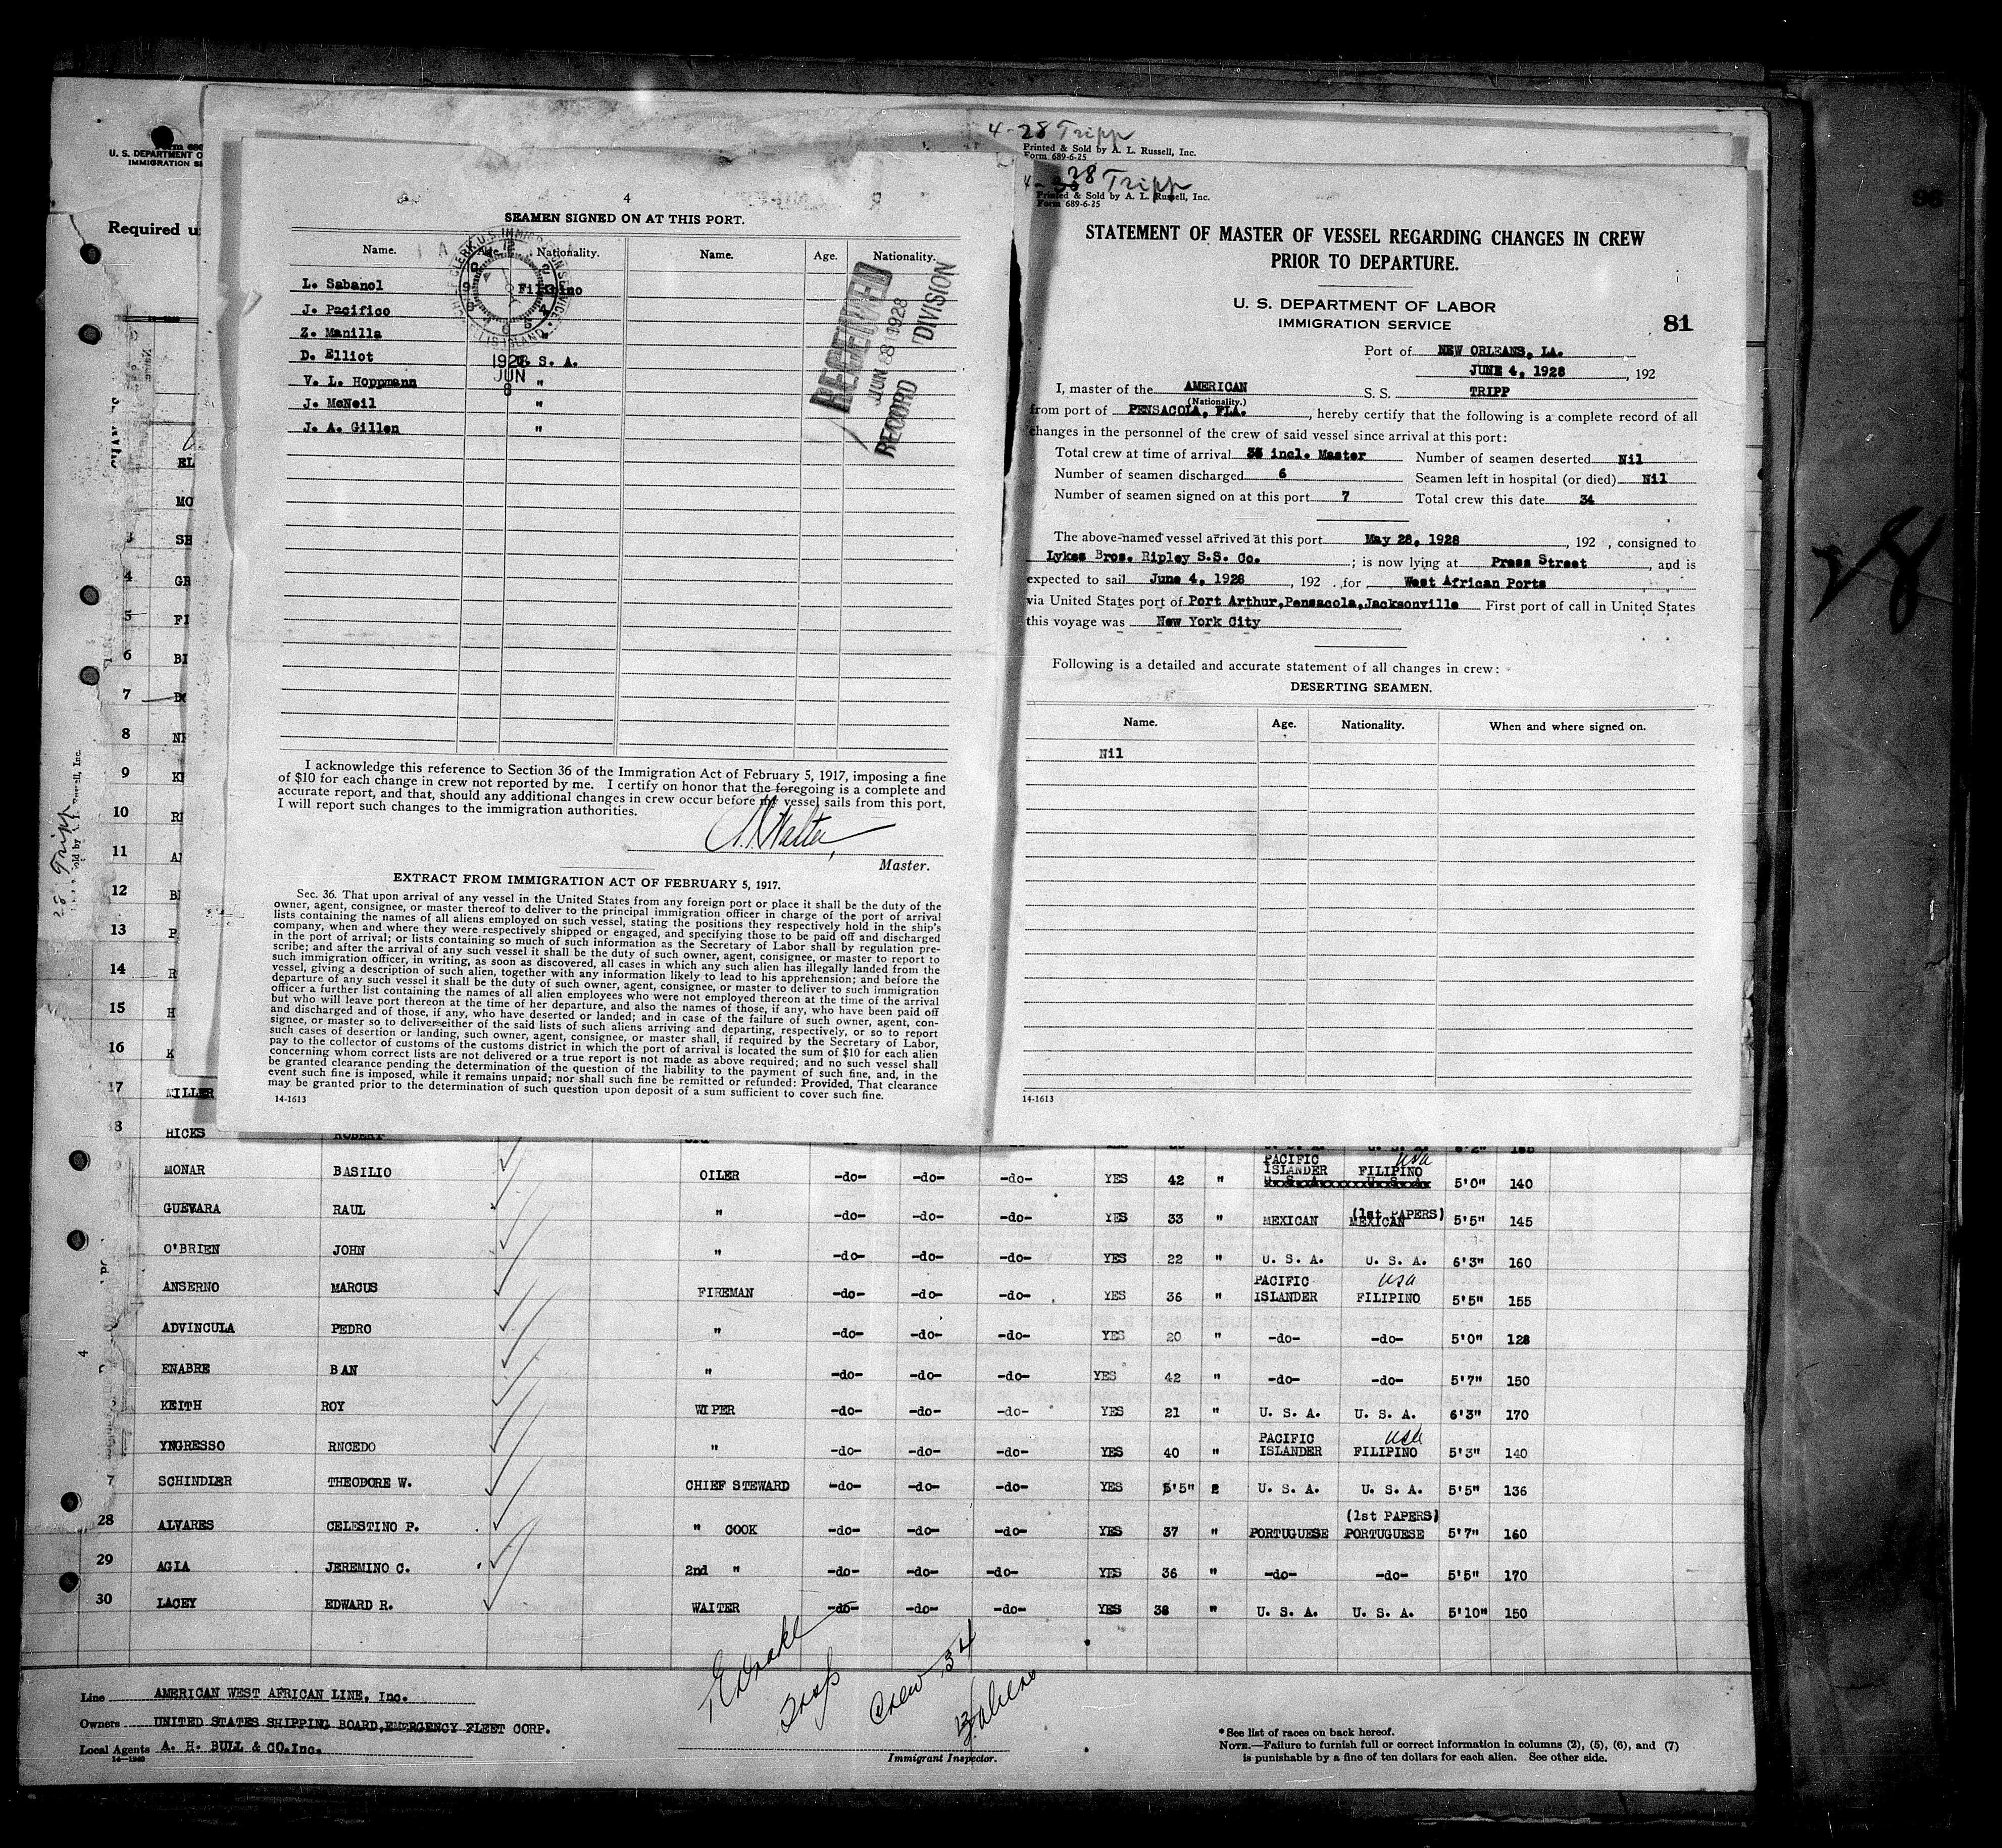 4-28 Tripp
Printed & Sold by A. L. Russell, Inc.
Form 689-6-25
U. S. DEPARTMENT O
IMMIGRATION SE
Required u
4
SEAMEN SIGNED ON AT THIS PORT.
Name. Age. Nationality. Name. Age. Nationality.
L. Sabanol Filipino
J. Pacifico
Z. Manilla
D. Elliot U. S. A.
V. L. Hoppmann "
J. McNeil "
J. A. Gillen "
1928
JUN
8
RECEIVED
JUN 8 1928
RECORD DIVISION
I acknowledge this reference to Section 36 of the Immigration Act of February 5, 1917, imposing a fine
of $10 for each change in crew not reported by me. I certify on honor that the foregoing is a complete and
accurate report, and that, should any additional changes in crew occur before my vessel sails from this port,
I will report such changes to the immigration authorities.
Master.
EXTRACT FROM IMMIGRATION ACT OF FEBRUARY 5, 1917.
Sec. 36. That upon arrival of any vessel in the United States from any foreign port or place it shall be the duty of the
owner, agent, consignee, or master thereof to deliver to the principal immigration officer in charge of the port of arrival
lists containing the names of all aliens employed on such vessel, stating the positions they respectively hold in the ship's
company, when and where they were respectively shipped or engaged, and specifying those to be paid off and discharged
in the port of arrival; or lists containing so much of such information as the Secretary of Labor shall by regulation pre-
scribe; and after the arrival of any such vessel it shall be the duty of such owner, agent, consignee, or master to report to
such immigration officer, in writing, as soon as discovered, all cases in which any such alien has illegally landed from the
vessel, giving a description of such alien, together with any information likely to lead to his apprehension; and before the
departure of any such vessel it shall be the duty of such owner, agent, consignee, or master to deliver to such immigration
officer a further list containing the names of all alien employees who were not employed thereon at the time of the arrival
but who will leave port thereon at the time of her departure, and also the names of those, if any, who have been paid off
and discharged and of those, if any, who have deserted or landed; and in case of the failure of such owner, agent, con-
signee, or master so to deliver either of the said lists of such aliens arriving and departing, respectively, or so to report
such cases of desertion or landing, such owner, agent, consignee, or master shall, if required by the Secretary of Labor,
pay to the collector of customs of the customs district in which the port of arrival is located the sum of $10 for each alien
concerning whom correct lists are not delivered or a true report is not made as above required; and no such vessel shall
be granted clearance pending the determination of the question of the liability to the payment of such fine, and, in the
event such fine is imposed, while it remains unpaid; nor shall such fine be remitted or refunded: Provided, That clearance
may be granted prior to the determination of such question upon deposit of a sum sufficient to cover such fine.
14-1613
28 Tripp
Printed & Sold by A. L. Russell, Inc.
Form 689-6-25
STATEMENT OF MASTER OF VESSEL REGARDING CHANGES IN CREW
PRIOR TO DEPARTURE.
U. S. DEPARTMENT OF LABOR
IMMIGRATION SERVICE
81
Port of NEW ORLEANS, LA.
JUNE 4, 1928, 192
I, master of the AMERICAN S. S. TRIPP
(Nationality.)
from port of PENSACOLA, FLA., hereby certify that the following is a complete record of all
changes in the personnel of the crew of said vessel since arrival at this port:
Total crew at time of arrival 33 incl. Master Number of seamen deserted Nil
Number of seamen discharged 6 Seamen left in hospital (or died) Nil
Number of seamen signed on at this port 7 Total crew this date 34
The above-named vessel arrived at this port May 28, 1928, 192 , consigned to
Lykes Bros. Ripley S.S. Co.; is now lying at Press Street, and is
expected to sail June 4, 1928, 192 . for West African Ports
via United States port of Port Arthur,Pensacola,Jacksonville First port of call in United States
this voyage was New York City
Following is a detailed and accurate statement of all changes in crew:
DESERTING SEAMEN.
Name. Age. Nationality. When and where signed on.
Nil
14-1613
98
EL
MO
3 SH
4 GR
5 FI
6 BI
7 BO
8 NI
9 KI
10 RI
11 AI
12 BI
13 P
14 R
15 H
16 K
17 MILLER
8 HICKS ROBERT
MONAR BASILIO OILER -do- -do- -do- YES 42 " PACIFIC ISLANDER FILIPINO usa 5'0" 140
GUEVARA RAUL " -do- -do- -do- YES 33 " MEXICAN MEXICAN (1st PAPERS) 5'5" 145
O'BRIEN JOHN " -do- -do- -do- YES 22 " U. S. A. U. S. A. 6'3" 160
ANSERNO MARCUS FIREMAN -do- -do- -do- YES 36 " PACIFIC ISLANDER FILIPINO usa 5'5" 155
ADVINCULA PEDRO " -do- -do- -do- YES 20 " -do- -do- 5'0" 128
ENABRE BAN " -do- -do- -do- YES 42 " -do- -do- 5'7" 150
KEITH ROY WIPER -do- -do- -do- YES 21 " U. S. A. U. S. A. 6'3" 170
YNGRESSO RNCEDO " -do- -do- -do- YES 40 " PACIFIC ISLANDER FILIPINO usa 5'3" 140
7 SCHINDLER THEODORE W. CHIEF STEWARD -do- -do- -do- YES 5'5" 2 U. S. A. U. S. A. 5'5" 136
28 ALVARES CELESTINO P. " COOK -do- -do- -do- YES 37 " PORTUGUESE PORTUGUESE (1st PAPERS) 5'7" 160
29 AGIA JEREMINO C. 2nd " -do- -do- -do- YES 36 " -do- -do- 5'5" 170
30 LACEY EDWARD R. WAITER -do- -do- -do- YES 38 " U. S. A. U. S. A. 5'10" 150
Crew 34
Line AMERICAN WEST AFRICAN LINE, Inc.
Owners UNITED STATES SHIPPING BOARD,EMERGENCY FLEET CORP.
Local Agents A. H. BULL & CO.Inc.
Immigrant Inspector.
*See list of races on back hereof.
NOTE.—Failure to furnish full or correct information in columns (2), (5), (6), and (7)
is punishable by a fine of ten dollars for each alien. See other side.